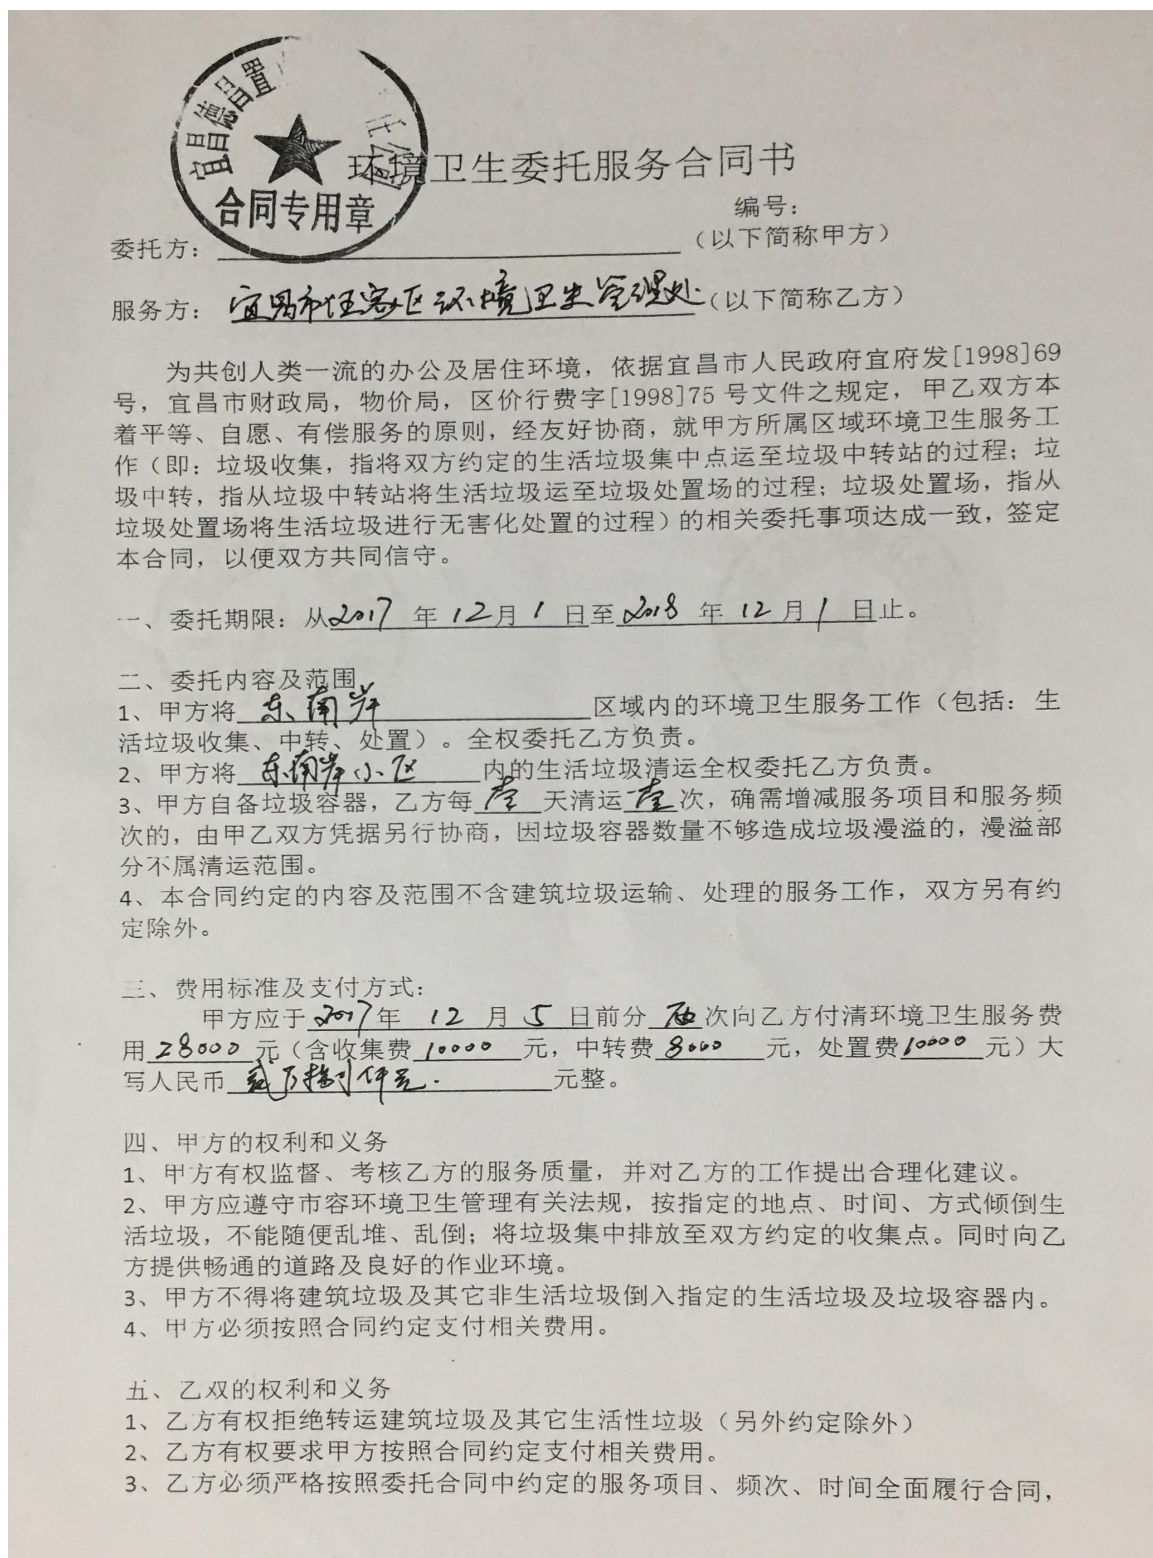 宜昌德昌置
任公司
合同专用章
环境卫生委托服务合同书
编号:
委托方: (以下简称甲方)
服务方: 宜昌市伍家区环境卫生管理处(以下简称乙方)
为共创人类一流的办公及居住环境, 依据宜昌市人民政府宜府发[1998]69
号, 宜昌市财政局, 物价局, 区价行费字[1998]75 号文件之规定, 甲乙双方本
着平等、自愿、有偿服务的原则, 经友好协商, 就甲方所属区域环境卫生服务工
作(即: 垃圾收集, 指将双方约定的生活垃圾集中点运至垃圾中转站的过程; 垃
圾中转, 指从垃圾中转站将生活垃圾运至垃圾处置场的过程; 垃圾处置场, 指从
垃圾处置场将生活垃圾进行无害化处置的过程)的相关委托事项达成一致, 签定
本合同, 以便双方共同信守。
一、委托期限: 从2017 年 12月 1 日至2018 年 12月 1 日止。
二、委托内容及范围
1、甲方将 东南岸 区域内的环境卫生服务工作(包括: 生
活垃圾收集、中转、处置)。全权委托乙方负责。
2、甲方将 东南岸小区 内的生活垃圾清运全权委托乙方负责。
3、甲方自备垃圾容器, 乙方每 壹 天清运 壹 次, 确需增减服务项目和服务频
次的, 由甲乙双方凭据另行协商, 因垃圾容器数量不够造成垃圾漫溢的, 漫溢部
分不属清运范围。
4、本合同约定的内容及范围不含建筑垃圾运输、处理的服务工作, 双方另有约
定除外。
三、费用标准及支付方式:
甲方应于 2017年 12 月 5 日前分 次向乙方付清环境卫生服务费
用 28000 元(含收集费 10000 元, 中转费 8000 元, 处置费10000 元)大
写人民币 贰万捌仟元. 元整。
四、甲方的权利和义务
1、甲方有权监督、考核乙方的服务质量, 并对乙方的工作提出合理化建议。
2、甲方应遵守市容环境卫生管理有关法规, 按指定的地点、时间、方式倾倒生
活垃圾, 不能随便乱堆、乱倒; 将垃圾集中排放至双方约定的收集点。同时向乙
方提供畅通的道路及良好的作业环境。
3、甲方不得将建筑垃圾及其它非生活垃圾倒入指定的生活垃圾及垃圾容器内。
4、甲方必须按照合同约定支付相关费用。
五、乙双的权利和义务
1、乙方有权拒绝转运建筑垃圾及其它生活性垃圾(另外约定除外)
2、乙方有权要求甲方按照合同约定支付相关费用。
3、乙方必须严格按照委托合同中约定的服务项目、频次、时间全面履行合同,